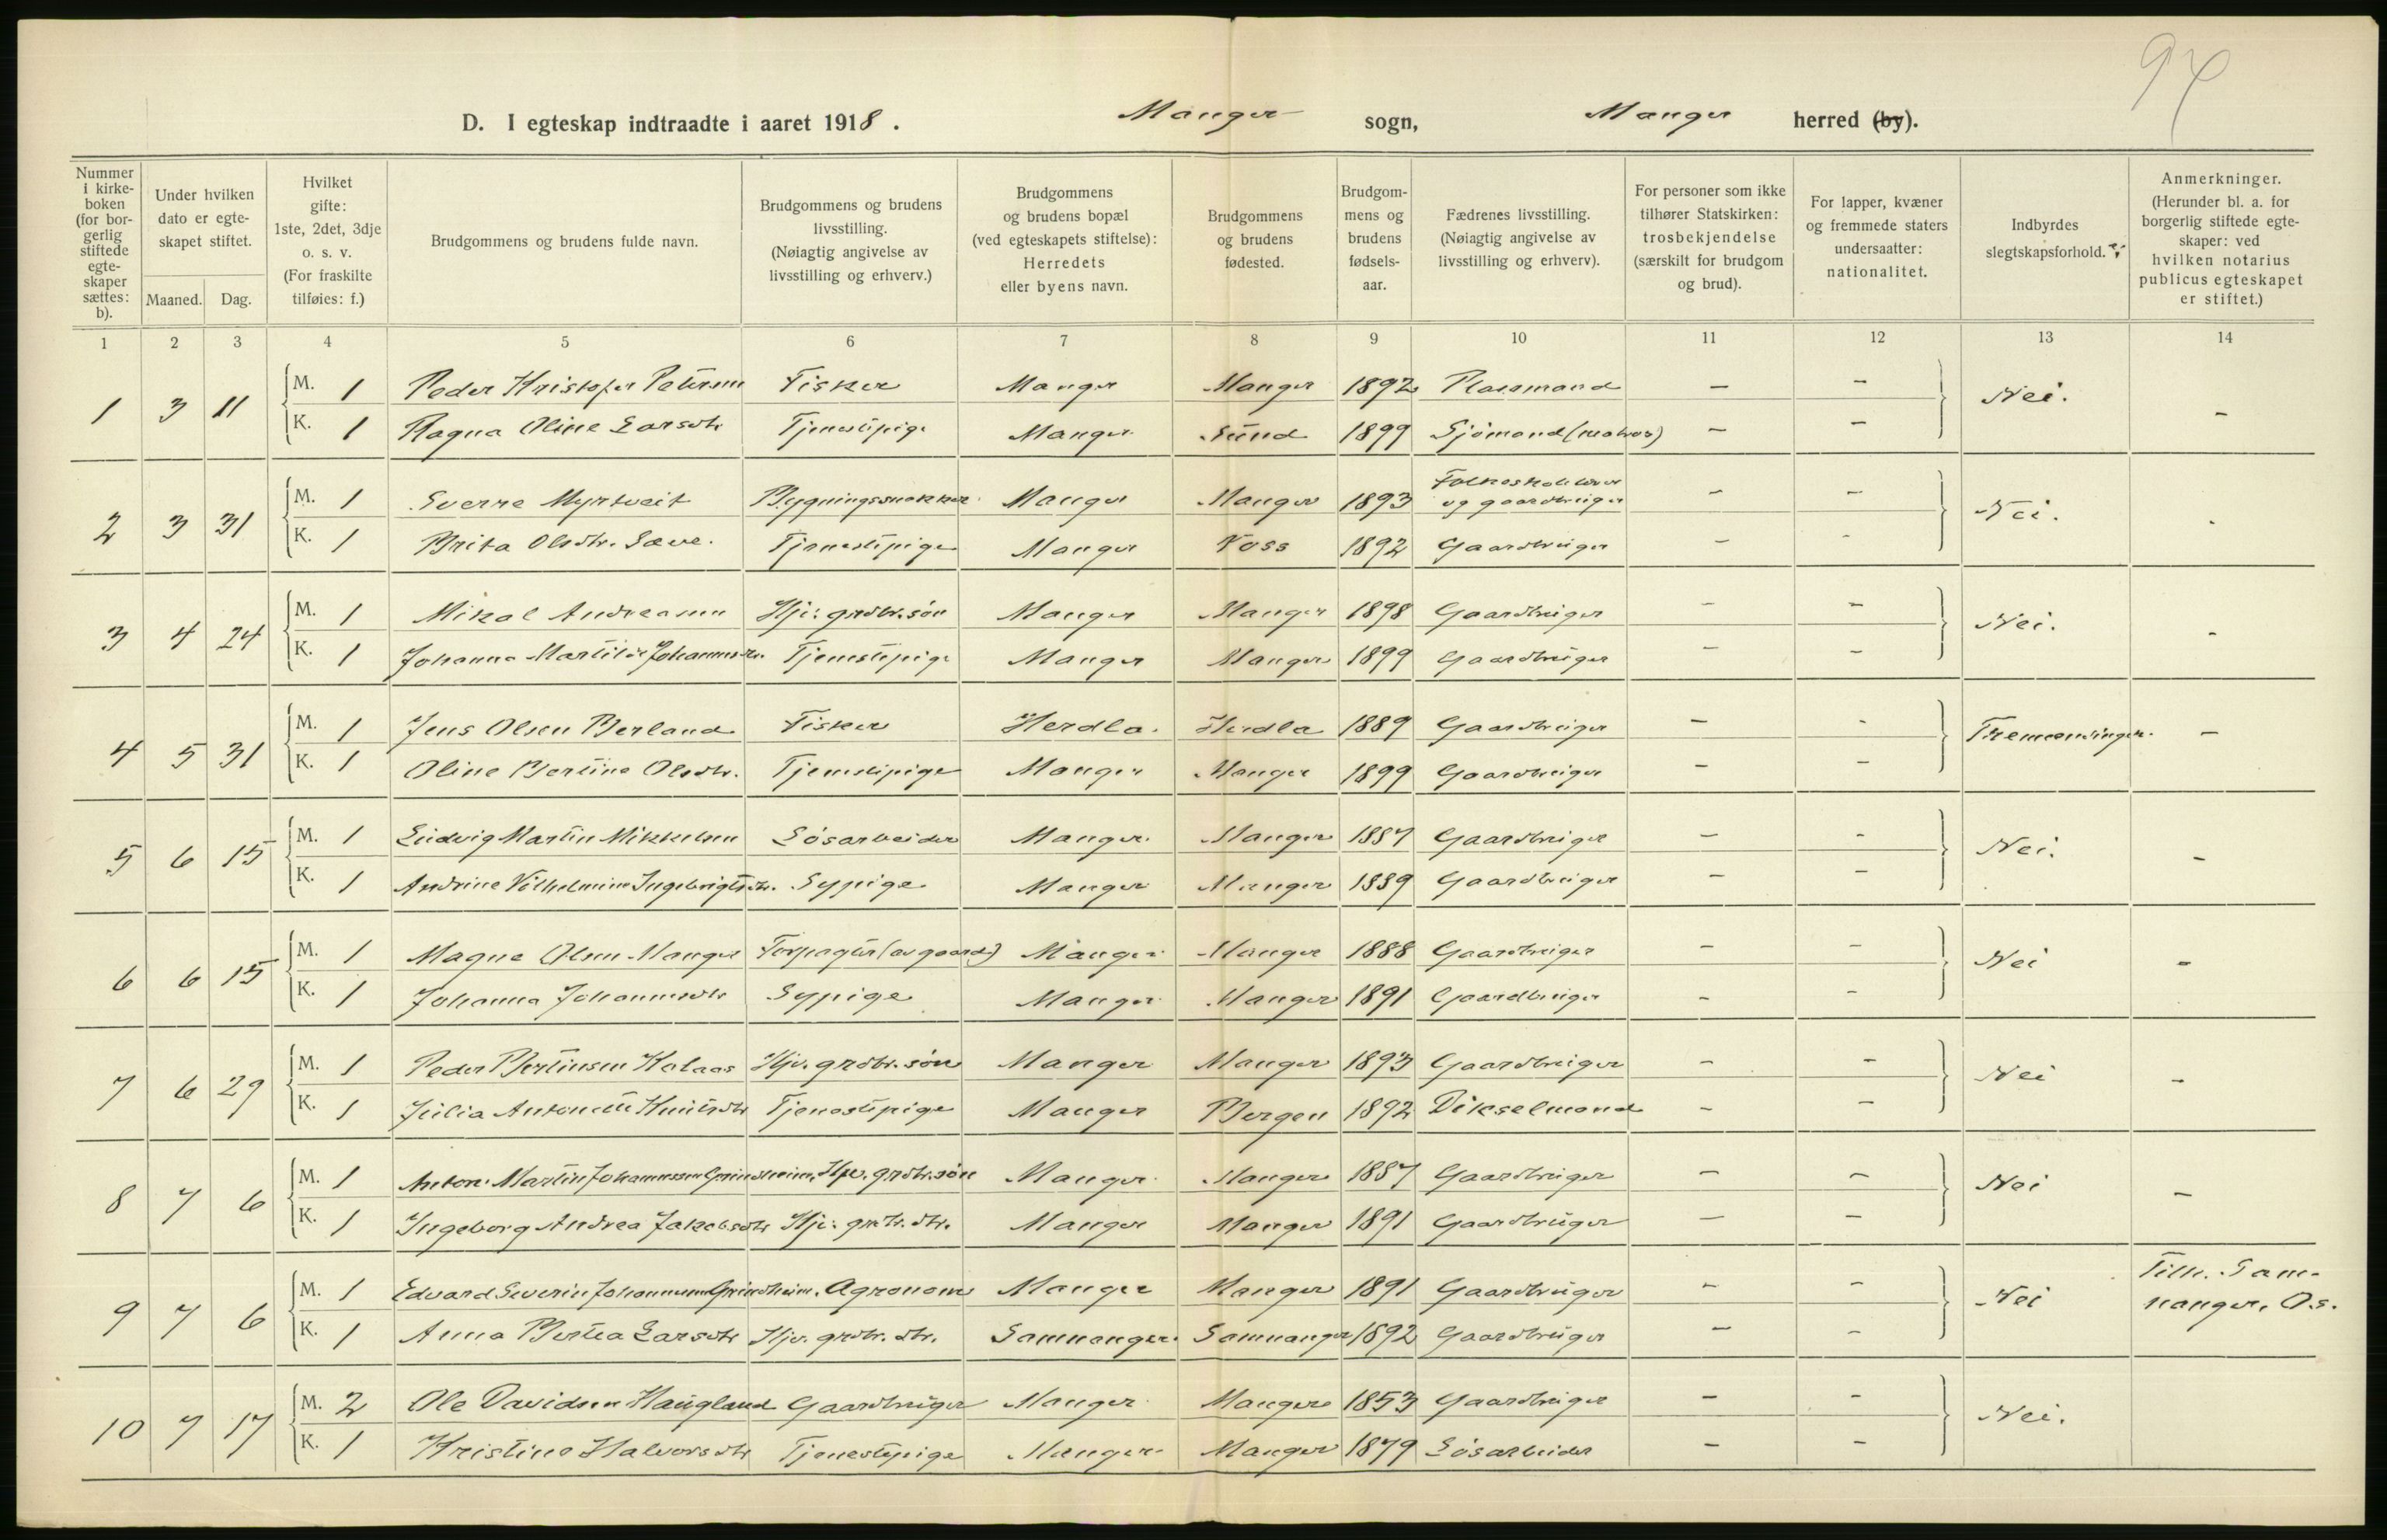 97
D. I egteskap indtraadte i aaret 1918. Manger sogn, Manger herred (by).
Nummer i kirke-boken (for bor-gerlig stiftede egte-skaper sættes: b).
Under hvilken dato er egte-skapet stiftet.
Maaned. Dag.
Hvilket gifte: 1ste, 2det, 3dje o. s. v. (For fraskilte tilføies: f.)
Brudgommens og brudens fulde navn.
Brudgommens og brudens livsstilling. (Nøiagtig angivelse av livsstilling og erhverv.)
Brudgommens og brudens bopæl (ved egteskapets stiftelse): Herredets eller byens navn.
Brudgommens og brudens fødested.
Brudgom-mens og brudens fødsels-aar.
Fædrenes livsstilling. (Nøiagtig angivelse av livsstilling og erhverv).
For personer som ikke tilhører Statskirken: trosbekjendelse (særskilt for brudgom og brud).
For lapper, kvæner og fremmede staters undersaatter: nationalitet.
Indbyrdes slegtskapsforhold.
Anmerkninger. (Herunder bl. a. for borgerlig stiftede egte-skaper: ved hvilken notarius publicus egteskapet er stiftet.)
1 2 3 4 5 6 7 8 9 10 11 12 13 14
1 3 11 M. 1 Peder Kristofer Petersen Fisker Manger Manger 1892 Plassmand - - Nei. -
K. 1 Ragna Oline Larsdtr Tjenestepige Manger Sund 1899 Sjömand (matros) - -
2 3 31 M. 1 Sverre Myrtveit Bygningssnekker Manger Manger 1893 Folkeskolelærer og gaardbruger - - Nei. -
K. 1 Brita Olsdtr. Sæve. Tjenestepige Manger Voss 1892 Gaardbruger - -
3 4 24 M. 1 Mikal Andreassen Hjv. grdbr. søn Manger Manger 1898 Gaardbruger - - Nei. -
K. 1 Johanna Martilde Johannesdtr. Tjenestepige Manger Manger 1899 Gaardbruger - -
4 5 31 M. 1 Jens Olsen Berland Fisker Herdla. Herdla 1889 Gaardbruger - - Tremenninger. -
K. 1 Oline Bertine Olsdtr. Tjenestepige Manger Manger 1899 Gaardbruger - -
5 6 15 M. 1 Ludvig Martin Mikkelsen Løsarbeider Manger Manger 1887 Gaardbruger - - Nei. -
K. 1 Andrine Vilhelmine Ingebrigtsdtr. Sypige Manger Manger 1889 Gaardbruger - -
6 6 15 M. 1 Magne Olsen Manger Forpagter (av gaard) Manger Manger 1888 Gaardbruger - - Nei -
K. 1 Johanna Johannesdtr Sypige Manger Manger 1891 Gaardbruger - -
7 6 29 M. 1 Peder Bertinsen Kalaas Hjv. grdbr. søn Manger Manger 1893 Gaardbruger - - Nei -
K. 1 Julia Antonette Knutsdtr Tjenestepige Manger Bergen 1892 Dikselmand - -
8 7 6 M. 1 Anton Martin Johannessen Grindheim. Hjv. grdbr. søn Manger Manger 1887 Gaardbruger - - Nei -
K. 1 Ingeborg Andrea Jakobsdtr Hjv. grdbr. dtr. Manger Manger 1891 Gaardbruger - -
9 7 6 M. 1 Edvard Severin Johannessen Grindheim. Agronom Manger Manger 1891 Gaardbruger - - Nei Tillh. Sam-
K. 1 Anna Bertea Larsdtr Hjv. grdbr. dtr. Samnanger. Samnanger 1892 Gaardbruger - - nanger, Os.
10 7 17 M. 2 Ole Davidsen Haugland Gaardbruger Manger Manger 1853 Gaardbruger - - Nei.
K. 1 Kristine Halvorsdtr Tjenestepige Manger Manger 1879 Løsarbeider - -